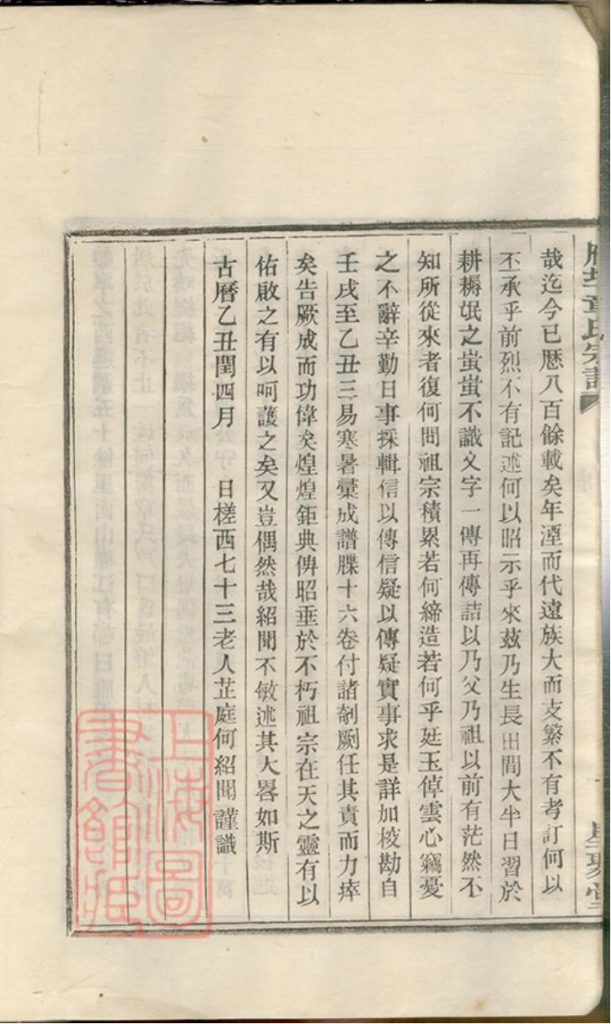 章氏宗譜
哉迄今已歷八百餘載矣年湮而代遠族大而支繁不有考訂何以
丕承乎前烈不有記述何以昭示乎來茲乃生長田間大半日習於
耕耨氓之蚩蚩不識文字一傳再傳詰以乃父乃祖以前有茫然不
知所從來者復何問祖宗積累若何締造若何乎廷玉倬雲心竊憂
之不辭辛勤日事採輯信以傳信疑以傳疑實事求是詳加校勘自
壬戌至乙丑三易寒暑彚成譜牒十六卷付諸剞劂任其責而力瘁
矣告厥成而功偉矣煌煌鉅典俾昭垂於不朽祖宗在天之靈有以
佑啟之有以呵護之矣又豈偶然哉紹聞不敏述其大畧如斯
古曆乙丑閏四月 日槎西七十三老人芷庭何紹聞謹識
上海圖
書館藏